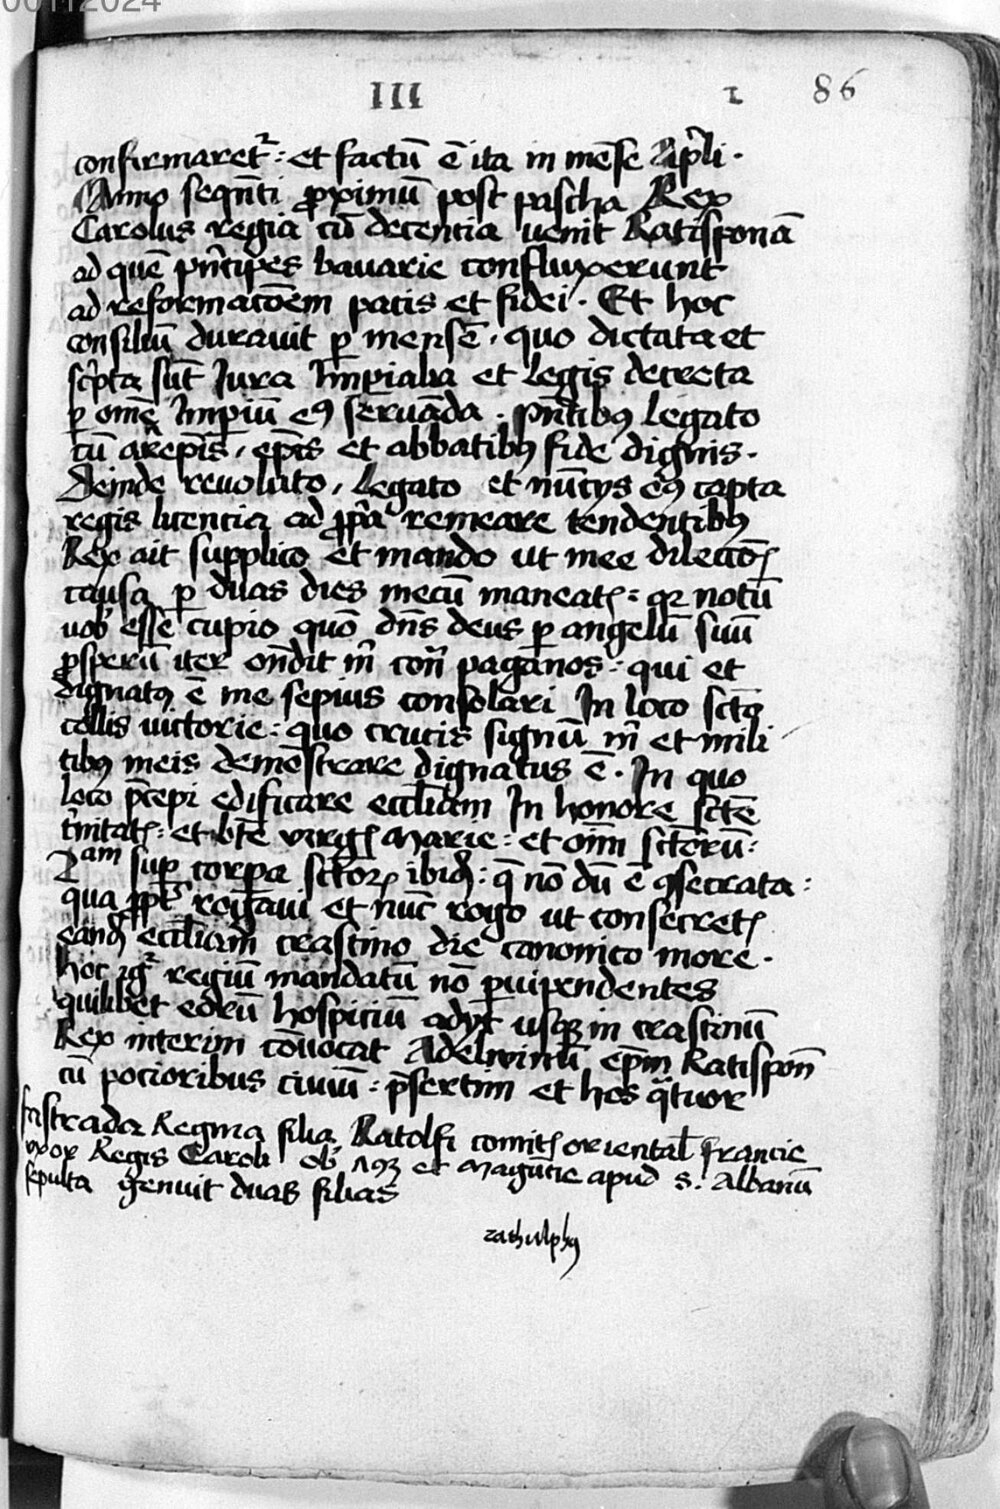 00112024
III 1 86
confirmaret᷑ : et factū ē ita in mēse Ap̄li .
Anno seqn̄ti proximū post pascha Rex
Carolus regia cū decentia uenit Ratisponā
ad quē pn̄cipes bauarie confluxerunt
ad reformacōem pacis et fidei . Et hoc
consiliū durauit ꝑ mensē , quo dictata et
scp̄ta sūt Jura Imp̄ialia et Legis decreta
ꝑ omē Imp̄iū eꝰ seruāda . pn̄tibꝰ Legato
cū arcep̄is , ep̄is et abbatibꝰ fide dignis .
Deinde reuoluto , Legato et nūcys eꝰ capta
regis licencia ad ꝓp̄a remeare tendentibꝰ
Rex ait supplico et mando ut mee dilectōꝭ
causa ꝑ duas dies mecū maneatꝭ : qꝛ notū
uob̄ esse cupio quō dn̄s deus ꝑ angelū suū
ꝓsperū iter on̄dit m̄ con̄ paganos : qui et
dignatꝰ ē me sepius consolari In loco scto
collis uictorie : quo crucis signū m̄ et mili
tibꝰ meis demōstrare dignatus ē . In quo
loco p̄cepi edificare eccl̄iam In honore scte
t̄nitatꝭ : et bt̄e virgꝭ Marie : et oīm sctorū :
Tam sup corpa sctoꝝ ibid̄ : q̄ nō dū ē ꝯsecrata :
qua ꝓpt᷑ rogaui et nūc rogo ut consecretꝭ
eand̄ eccl̄iam crastino die canonico more .
Hoc igr̄ regiū mandatū nō ꝑuipendentes
quilibet eorū hospiciū adyt usqꝫ in crastinū
Rex interim cōuocat Adelwinū ep̄m Ratispon̄
cū pocioribus ciuiū : p̄sertim et hos q̄tuor
fastrada Regina filia Ratolfi comitꝭ oriental̄ francie
vxor Regis Caroli ob̄ et Magucie apud s. Albanū
sepulta genuit duas filias
rathulphꝰ